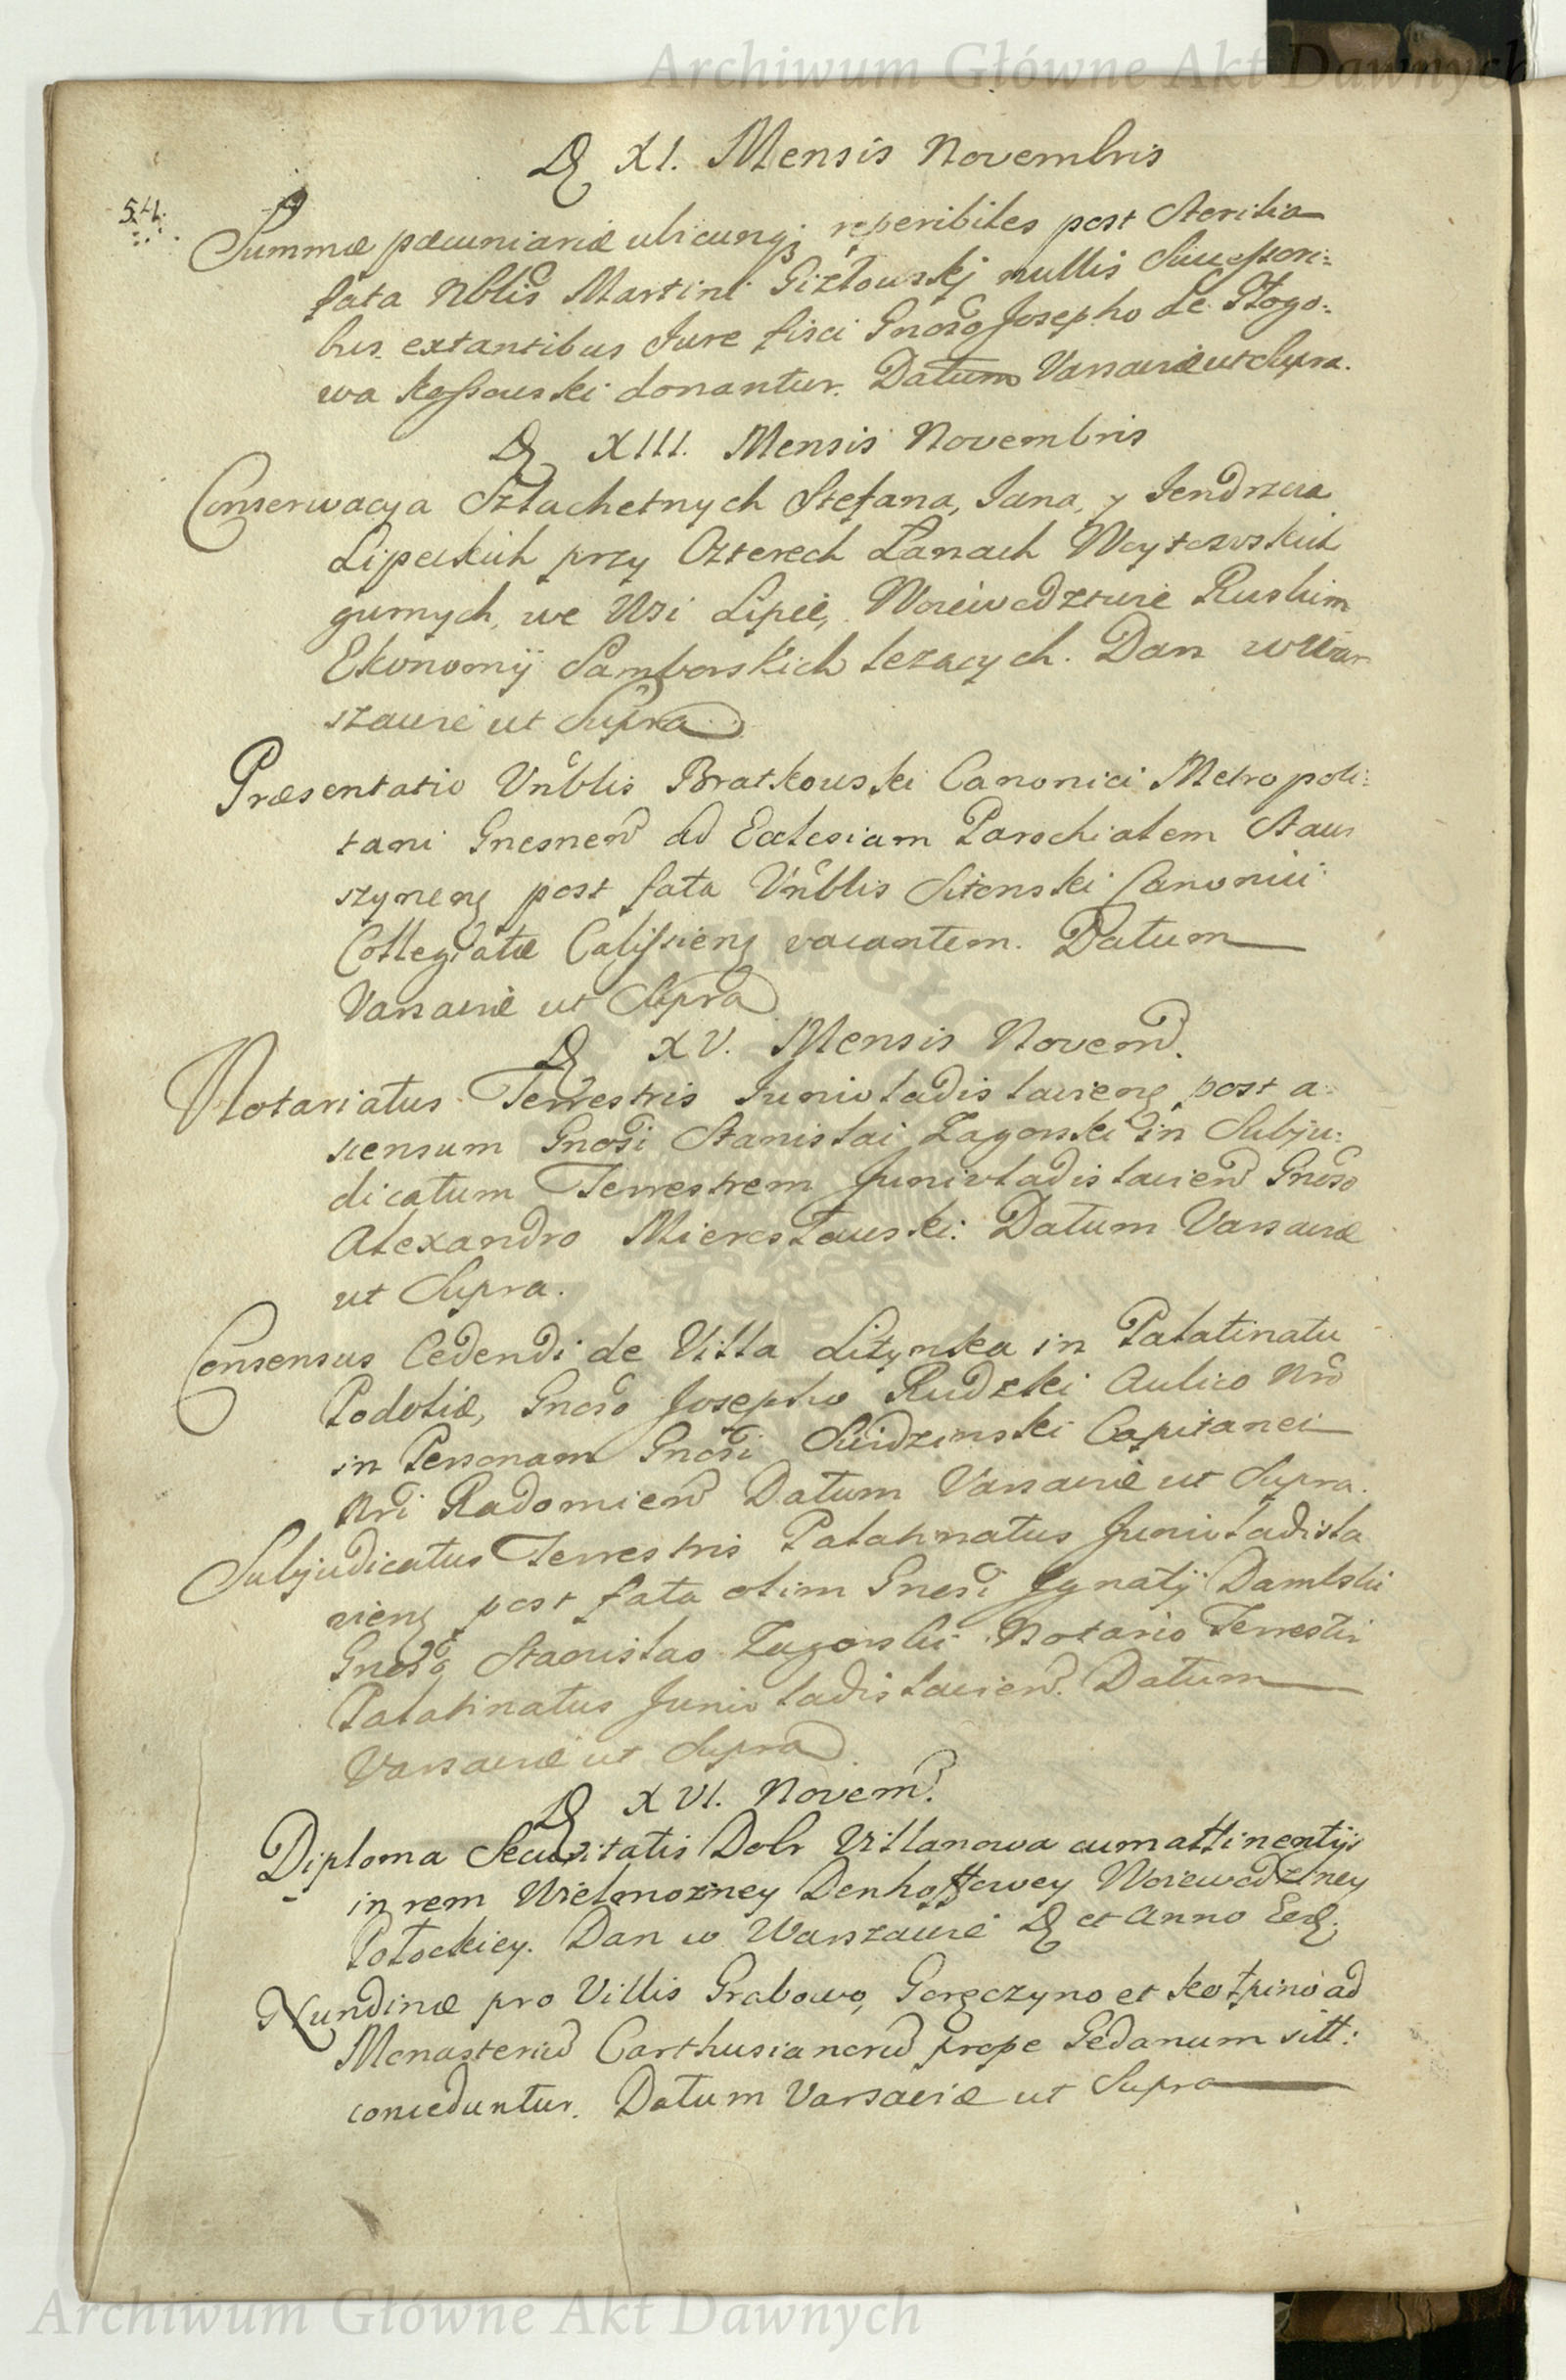 Archiwum Główne Akt Dawnych
D XI. Mensis Novembris
54.
Summæ pæcuniariæ ubicunqꝫ reperibiles post sterilia
fata Nblis Martini Gizłowskj nullis Successori:
bus extantibus Jure fisci Gnoso Josepho de Głogo:
wa Kossowski donantur. Datum Varsaviæ ut Supra.
D XIII. Mensis Novembris
Conserwacya Szlachetnych Stefana, Jana, y Jendrzeia
Lipeckich przy Czterech Łanach Woytowskich
gurnych, we Wsi Lipie, Woiewodztwie Ruskim
Ekonomij Samborskich lezacych. Dan w War
szawie ut Supra
Præsentatio Vnblis Bratkowski Canonici Metropoli:
tani Gnesnen ad Ecclesiam Parochialem Staw
szynens post fata Vnblis Sitenski Canonici
Collegiatæ Calissiens vacantem. Datum
Varsaviæ ut Supra
D XV. Mensis Novem.
Notariatus Terrestris Junivladislaviens post a:
scensum Gnosi Stanislai Zagorski in Subju:
dicatum Terrestrem Junivladislavien Gnoso
Alexandro Mierosławski. Datum Varsaviæ
ut Supra.
Consensus Cedendi de Villa Lityńka in Palatinatu
Podoliæ, Gnoso Josepho Rudzki Aulico Nro
in Personam Gnosi Swidzinski Capitanei
Nri Radomien Datum Varsaviæ ut Supra.
Subjudicatus Terrestris Palatinatus Junivladisla
viens post fata olim Gnosi Jgnatij Dambski
Gnoso Stanislao Zagorski Notario Terrestri
Palatinatus Junivladislavien. Datum
Varsaviæ ut Supra
D XVI. Novem.
Diploma Securitatis Dobr Villanowa cum attinentijs
in rem Wielmozney Denhoffowey Woiewodziney
Połockiey. Dan w Warszawie D et Anno Eod.
Nundinæ pro Villis Grabowo, Goręczyno et Kołpino ad
Monasteriu Carthusianoru prope Gedanum sitt:
conceduntur. Datum Varsaviæ ut Supra
Archiwum Główne Akt Dawnych